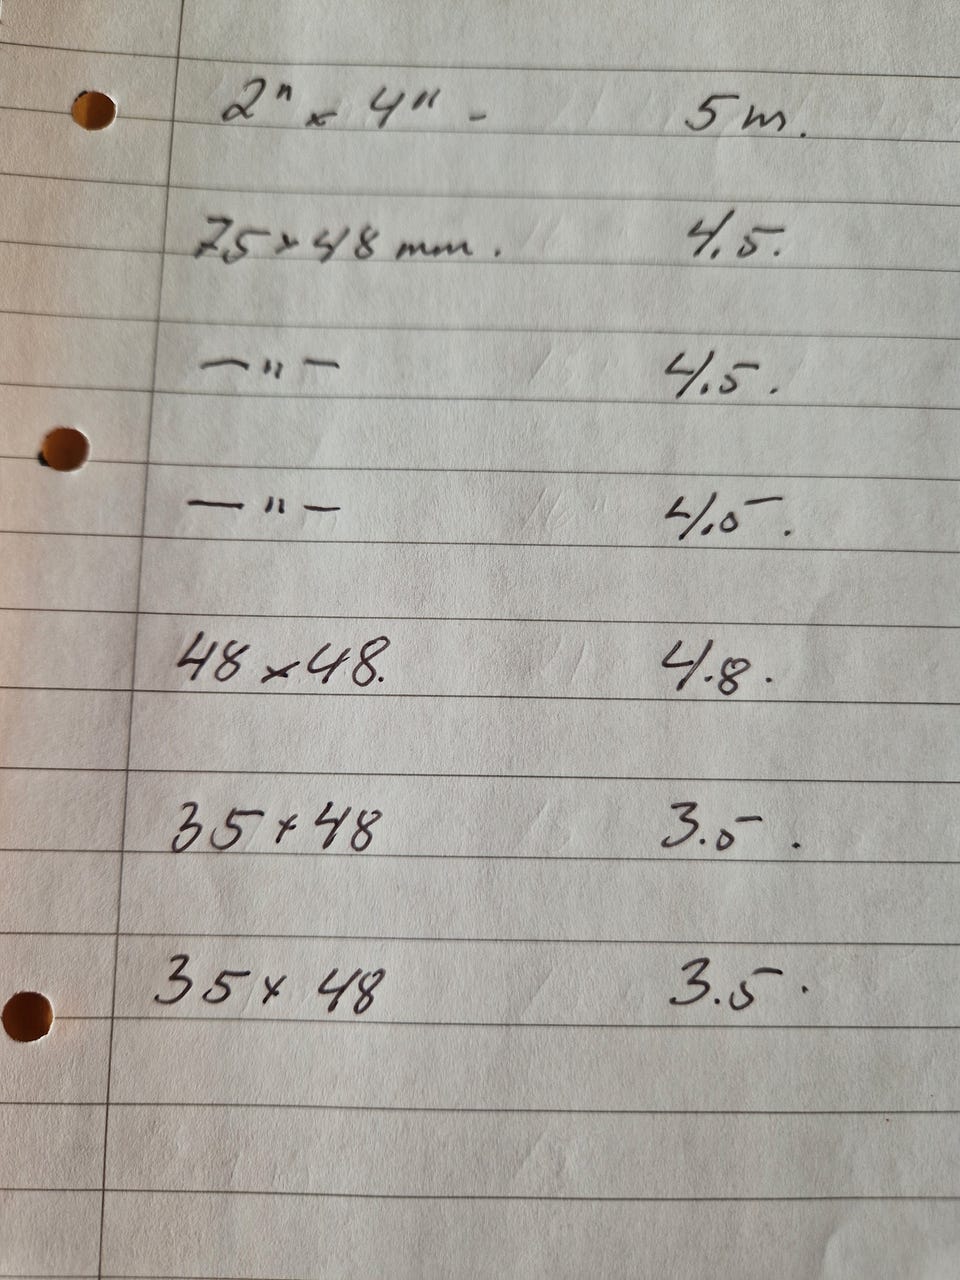 2" x 4" - 5 m.
75 x 48 mm. 4.5.
—"— 4.5.
—"— 4.5.
48 x 48. 4.8.
35 x 48 3.5.
35 x 48 3.5.